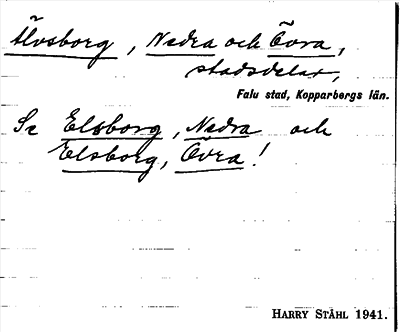 Älvsborg, Nedra och Övra,
stadsdelar,
Falu stad, Kopparbergs län.
Se Elsborg, Nedra och
Elsborg, Övra!
HARRY STÅHL 1941.